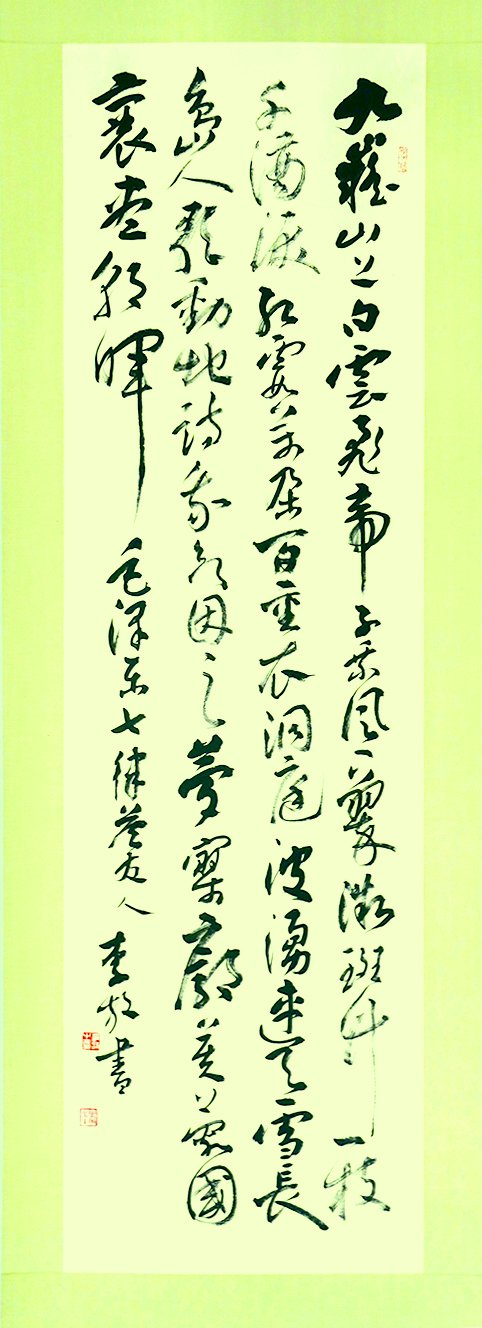 九嶷山上白雲飛帝子乘風下翠微斑竹一枝
千滴淚紅霞萬朵百重衣洞庭波湧連天雪長
島人歌動地詩我欲因之夢寥廓芙蓉國
裏盡朝暉 毛澤東七律答友人 李放書